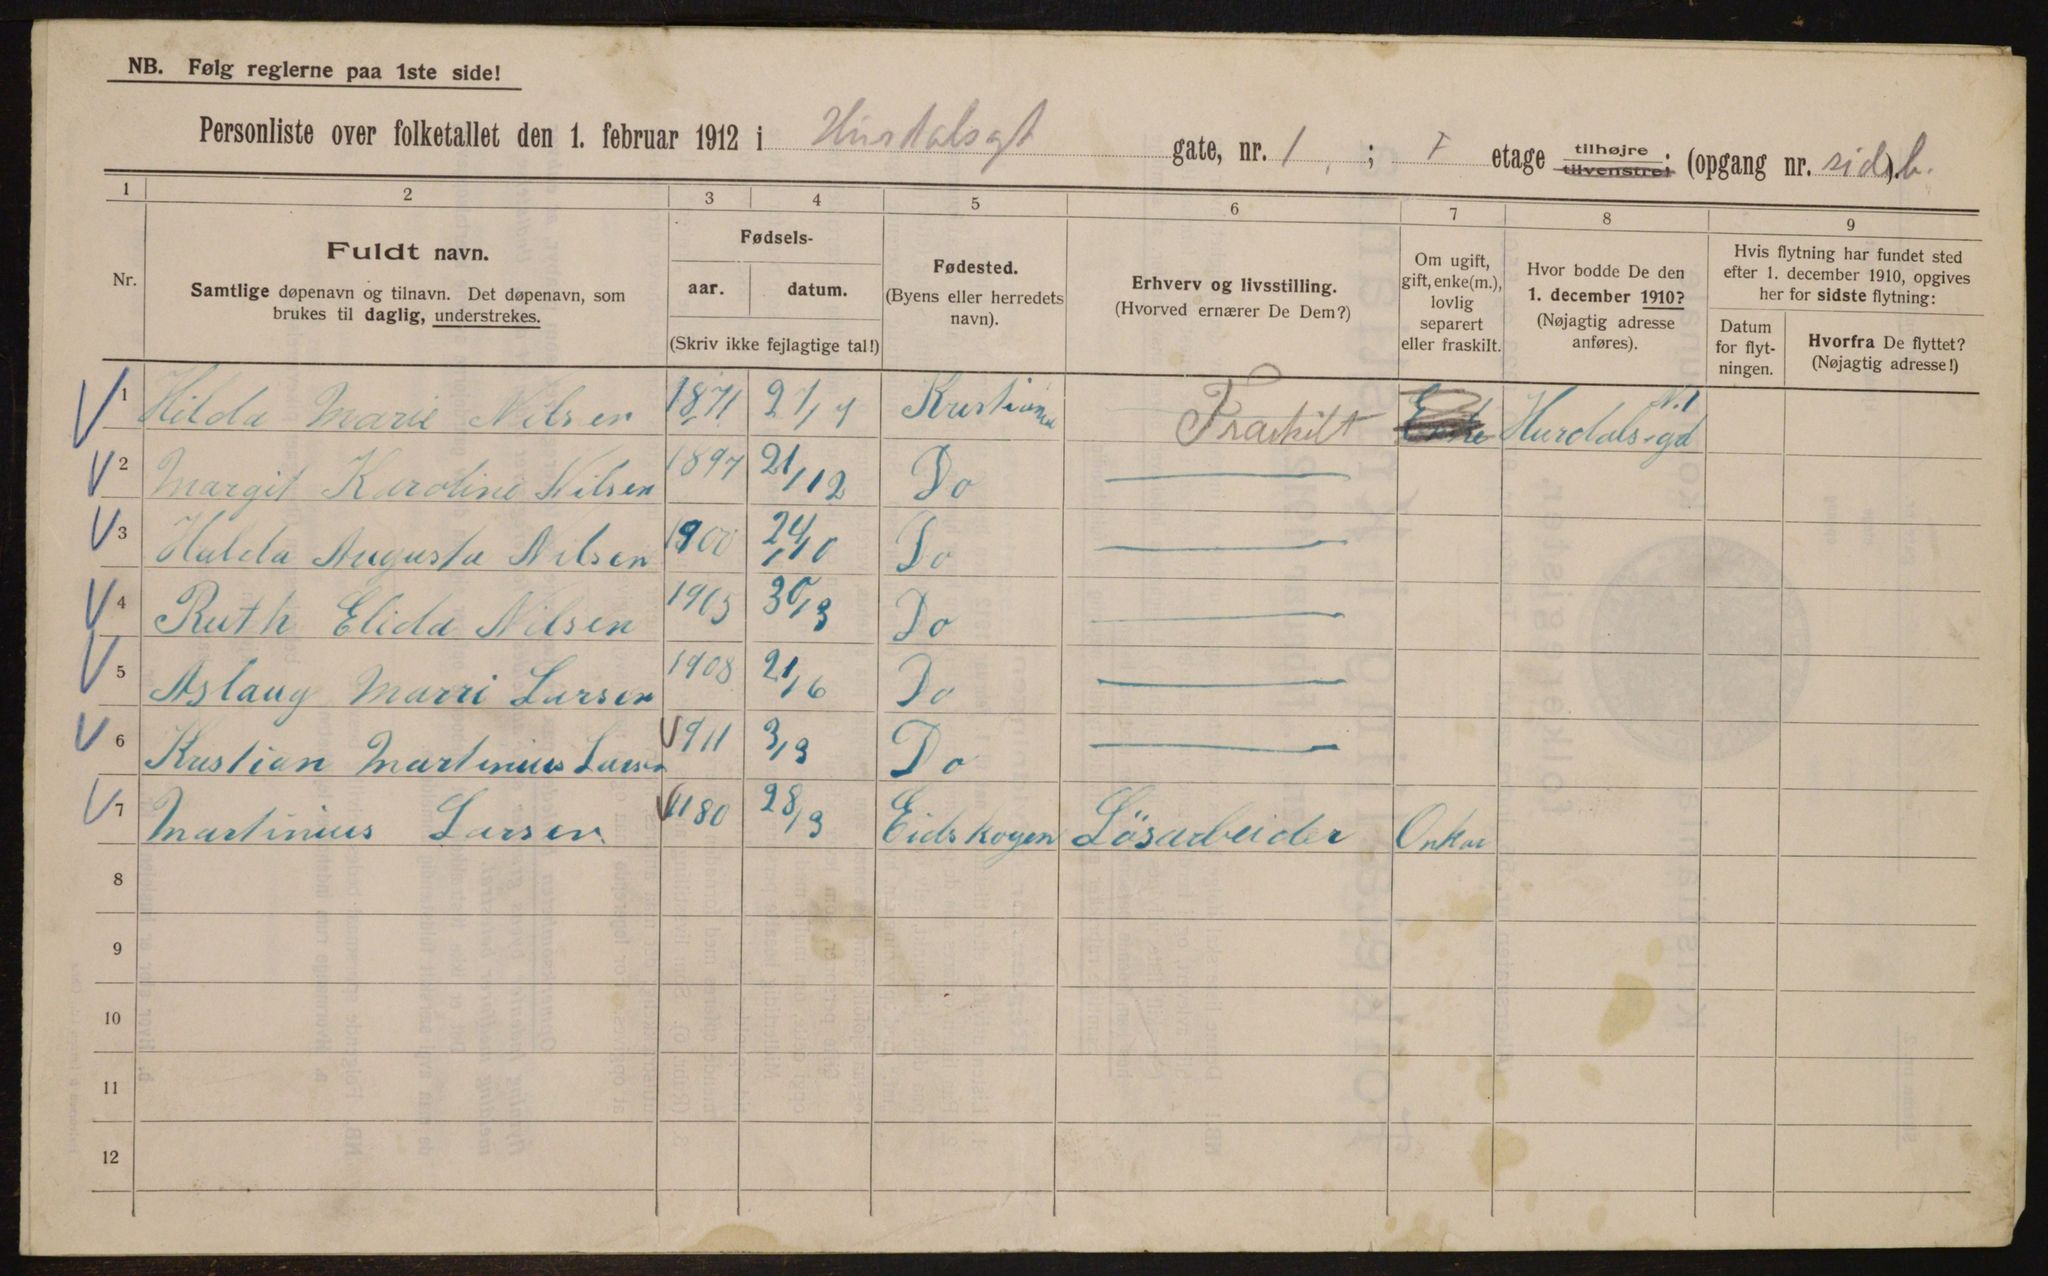 NB. Følg reglerne paa 1ste side!
Personliste over folketallet den 1. februar 1912 i Hurdalsgt gate, nr. 1 ; I etage tilhøjre tilvenstre; (opgang nr. sideb.).
1 2 3 4 5 6 7 8 9
Nr.
Fuldt navn.
Samtlige døpenavn og tilnavn. Det døpenavn, som
brukes til daglig, understrekes.
Fødsels-
aar. datum.
(Skriv ikke fejlagtige tal!)
Fødested.
(Byens eller herredets
navn).
Erhverv og livsstilling.
(Hvorved ernærer De Dem?)
Om ugift,
gift, enke(m.),
lovlig
separert
eller fraskilt.
Hvor bodde De den
1. december 1910?
(Nøjagtig adresse
anføres).
Hvis flytning har fundet sted
efter 1. december 1910, opgives
her for sidste flytning:
Datum
for flyt-
ningen.
Hvorfra De flyttet?
(Nøjagtig adresse!)
1 Hilda Marie Nilsen 1871 Kristiania Fraskilt Enke Hurdals-gd N.1
2 Margit Karoline Nilsen 1897 21/12 Do
3 Hulda Augusta Nilsen 1900 24/10 Do
4 Ruth Elida Nilsen 1905 30/3 Do
5 Aslaug Marri Larsen 1908 21/6 Do
6 Kristian Martinius Larsen 1911 3/3 Do
7 Martinius Larsen 1180 28/3 Eidskogen Løsarbeider
8
9
10
11
12